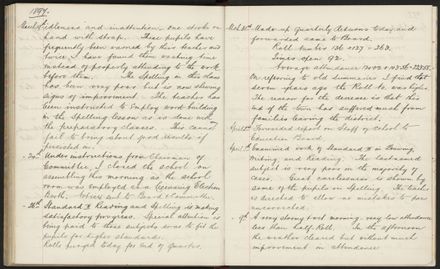 1894.
idleness and inattention one stroke on
hand with strap. These pupils have
frequently been warned by this teacher and
twice I have found them wasting time
instead of properly attending to the work
before them. The spelling in this class
has been very poor but is now showing
signs of improvement. The teacher has
been instructed to employ word building
in the spelling lesson as is done in
the preparatory classes. This cannot
fail to bring about good results if
persisted in.
Under instructions from Chairman of
Committee, I closed the school on
assembling this morning as the school
room was employed as a Licensing Election
Booth. Wrote out to Board & Committee.
Standard V Reading and Spelling is making
satisfactory progress. Special attention is
being paid to these subjects so as to fit the
pupils for higher standards.
Rolls purged today for End of Quarter.
Made up Quarterly Returns today and
forwarded same to Board.
Roll Number 136 + 127 = 263.
Tinds open 92.
Average attendance
On referring to old summaries I find that
seven years ago the Roll No. was higher.
The reason for the decrease is that this
end of the town has suffered much from
families leaving the district.
Forwarded report on Staff of school to
Education Board.
Examined work of Standard II in Drawing,
Writing and Reading. The last named
subject is very poor in the majority of
cases. Great carelessness is shown by
some of the pupils in Spelling. The teacher
is directed to allow no mistakes to pass
uncorrected.
A very stormy wet morning, very low attendance
less than half Roll. In the afternoon
the weather cleared but without much
improvement in attendance